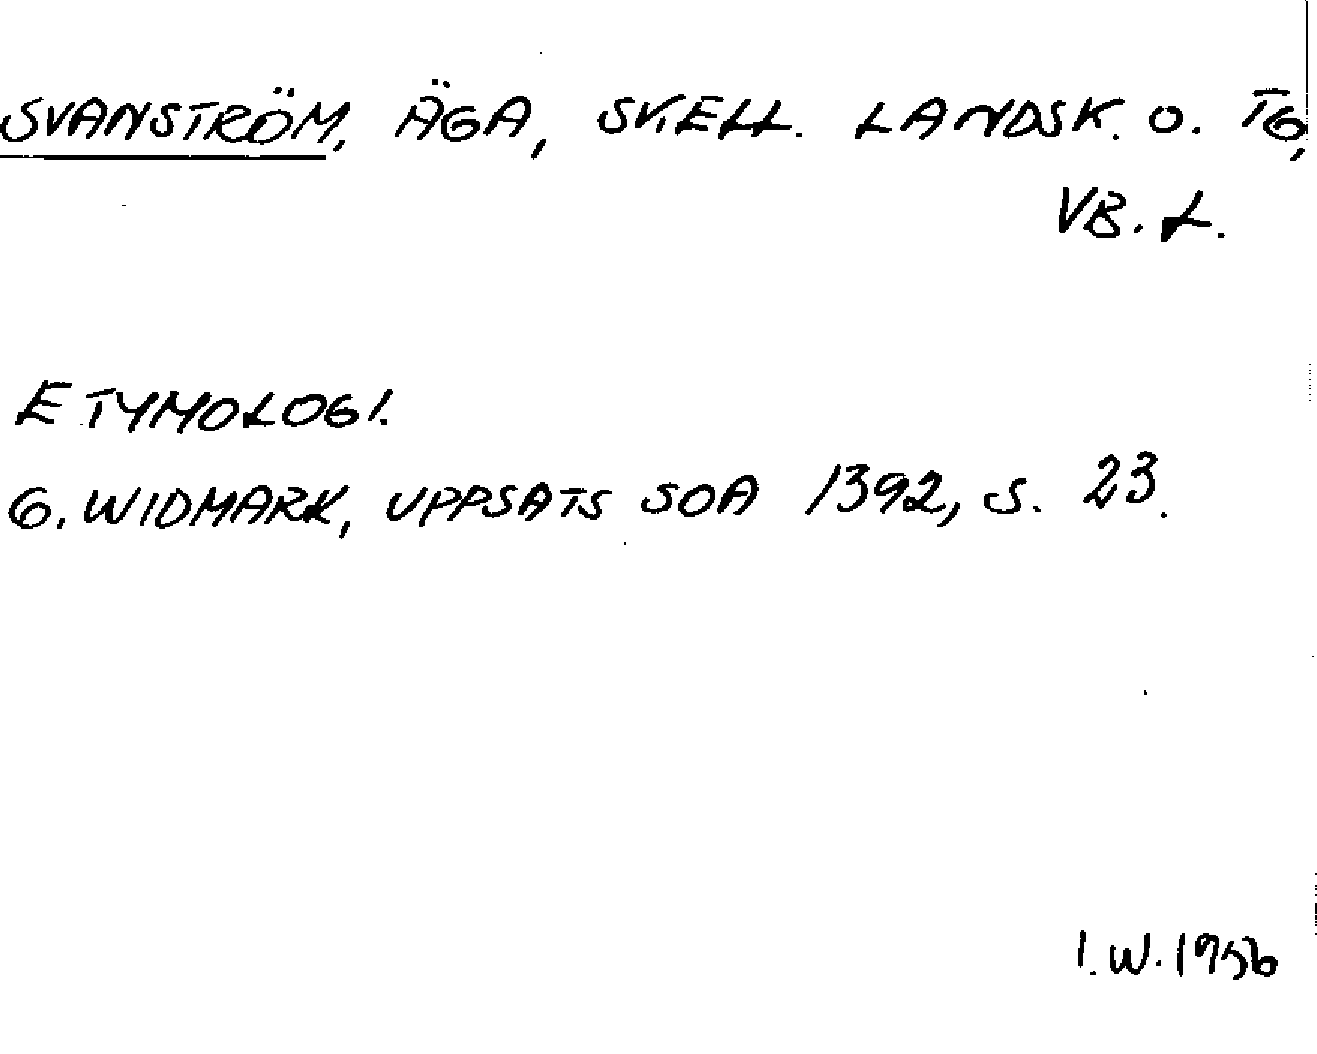 SVANSTRÖM, ÄGA, SKELL. LANDSK. O. TG,
VB. L.
ETYMOLOGI.
G. WIDMARK, UPPSATS SOA 1392, S. 23.
I. W. 1956